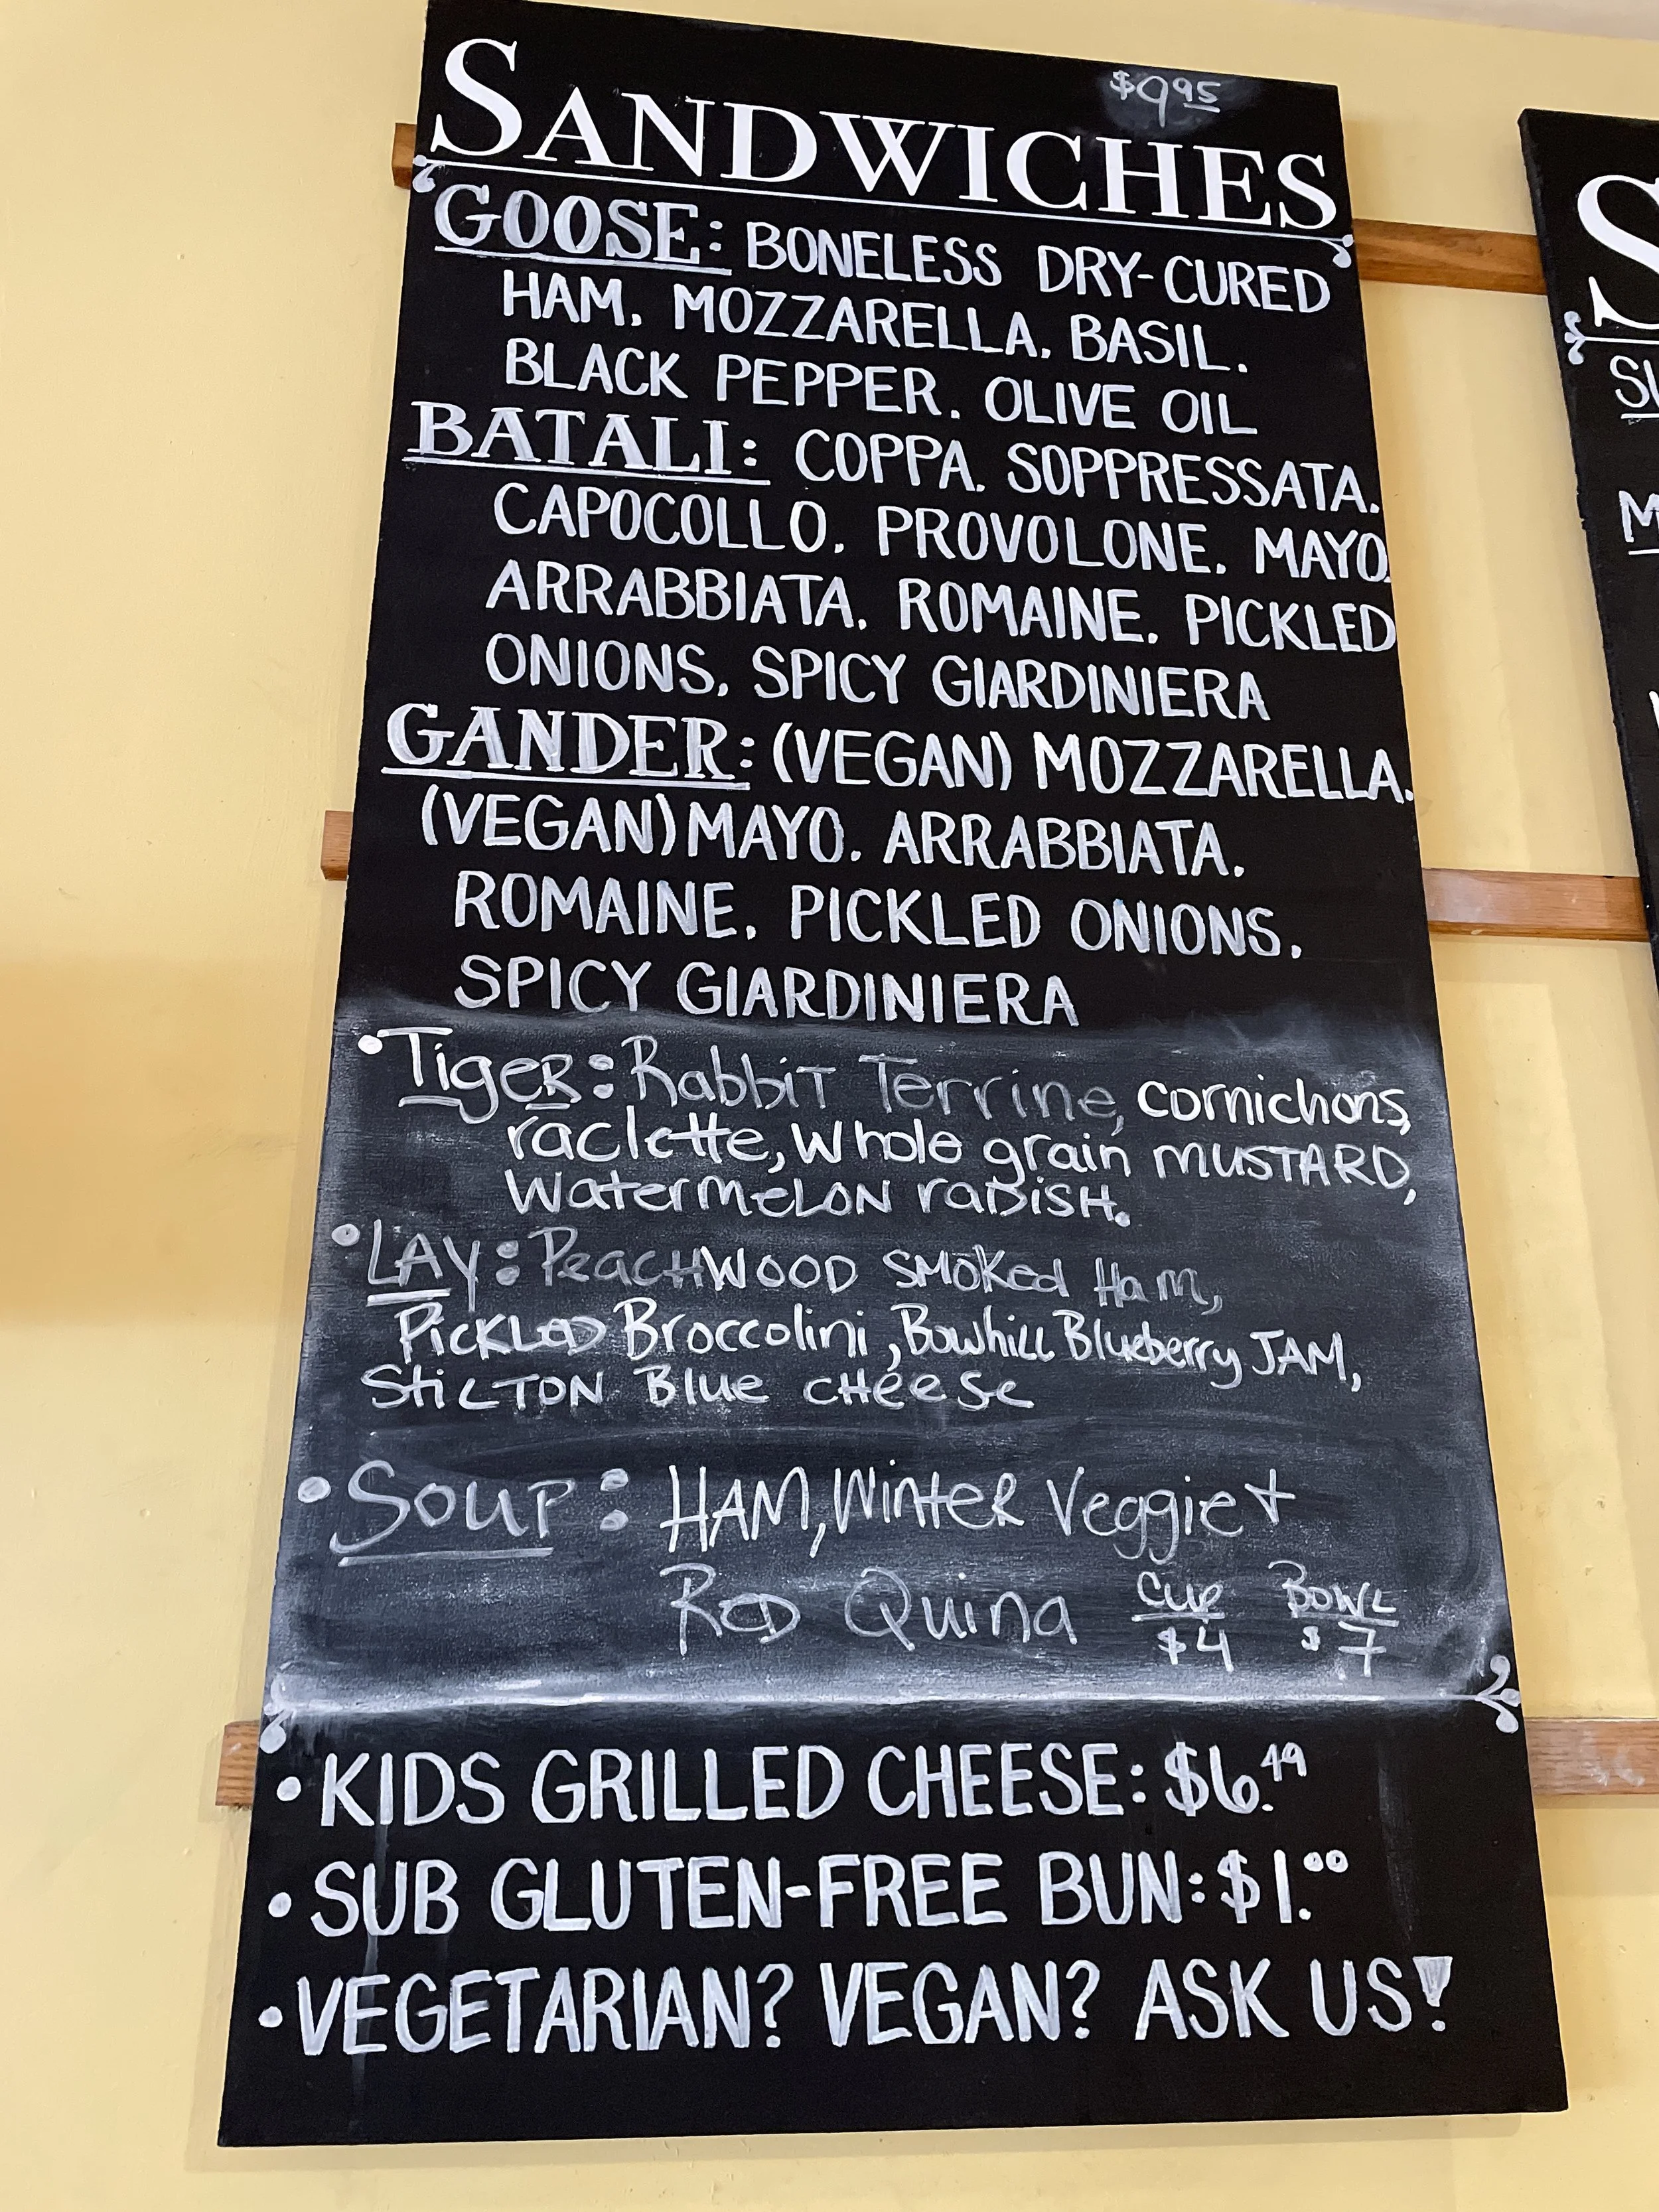 $9.95
SANDWICHES
GOOSE: BONELESS DRY-CURED
HAM. MOZZARELLA. BASIL.
BLACK PEPPER. OLIVE OIL
BATALI: COPPA. SOPPRESSATA.
CAPOCOLLO. PROVOLONE. MAYO.
ARRABBIATA. ROMAINE. PICKLED
ONIONS. SPICY GIARDINIERA
GANDER: (VEGAN) MOZZARELLA.
(VEGAN) MAYO. ARRABBIATA.
ROMAINE. PICKLED ONIONS.
SPICY GIARDINIERA
• TigeR: Rabbit Terrine, cornichons,
raclette, Whole grain MUSTARD,
WatermeLON raDisH.
• LAY: PeacHWOOD SMOKed Ham,
PicKLeD Broccolini, Bowhill Blueberry JAM,
StiLTON Blue cHeese
• Soup: HAM, Winter Veggie +
ReD Quina
Cup $4
BOWL $7
• KIDS GRILLED CHEESE: $6.49
• SUB GLUTEN-FREE BUN: $1.00
• VEGETARIAN? VEGAN? ASK US!
S